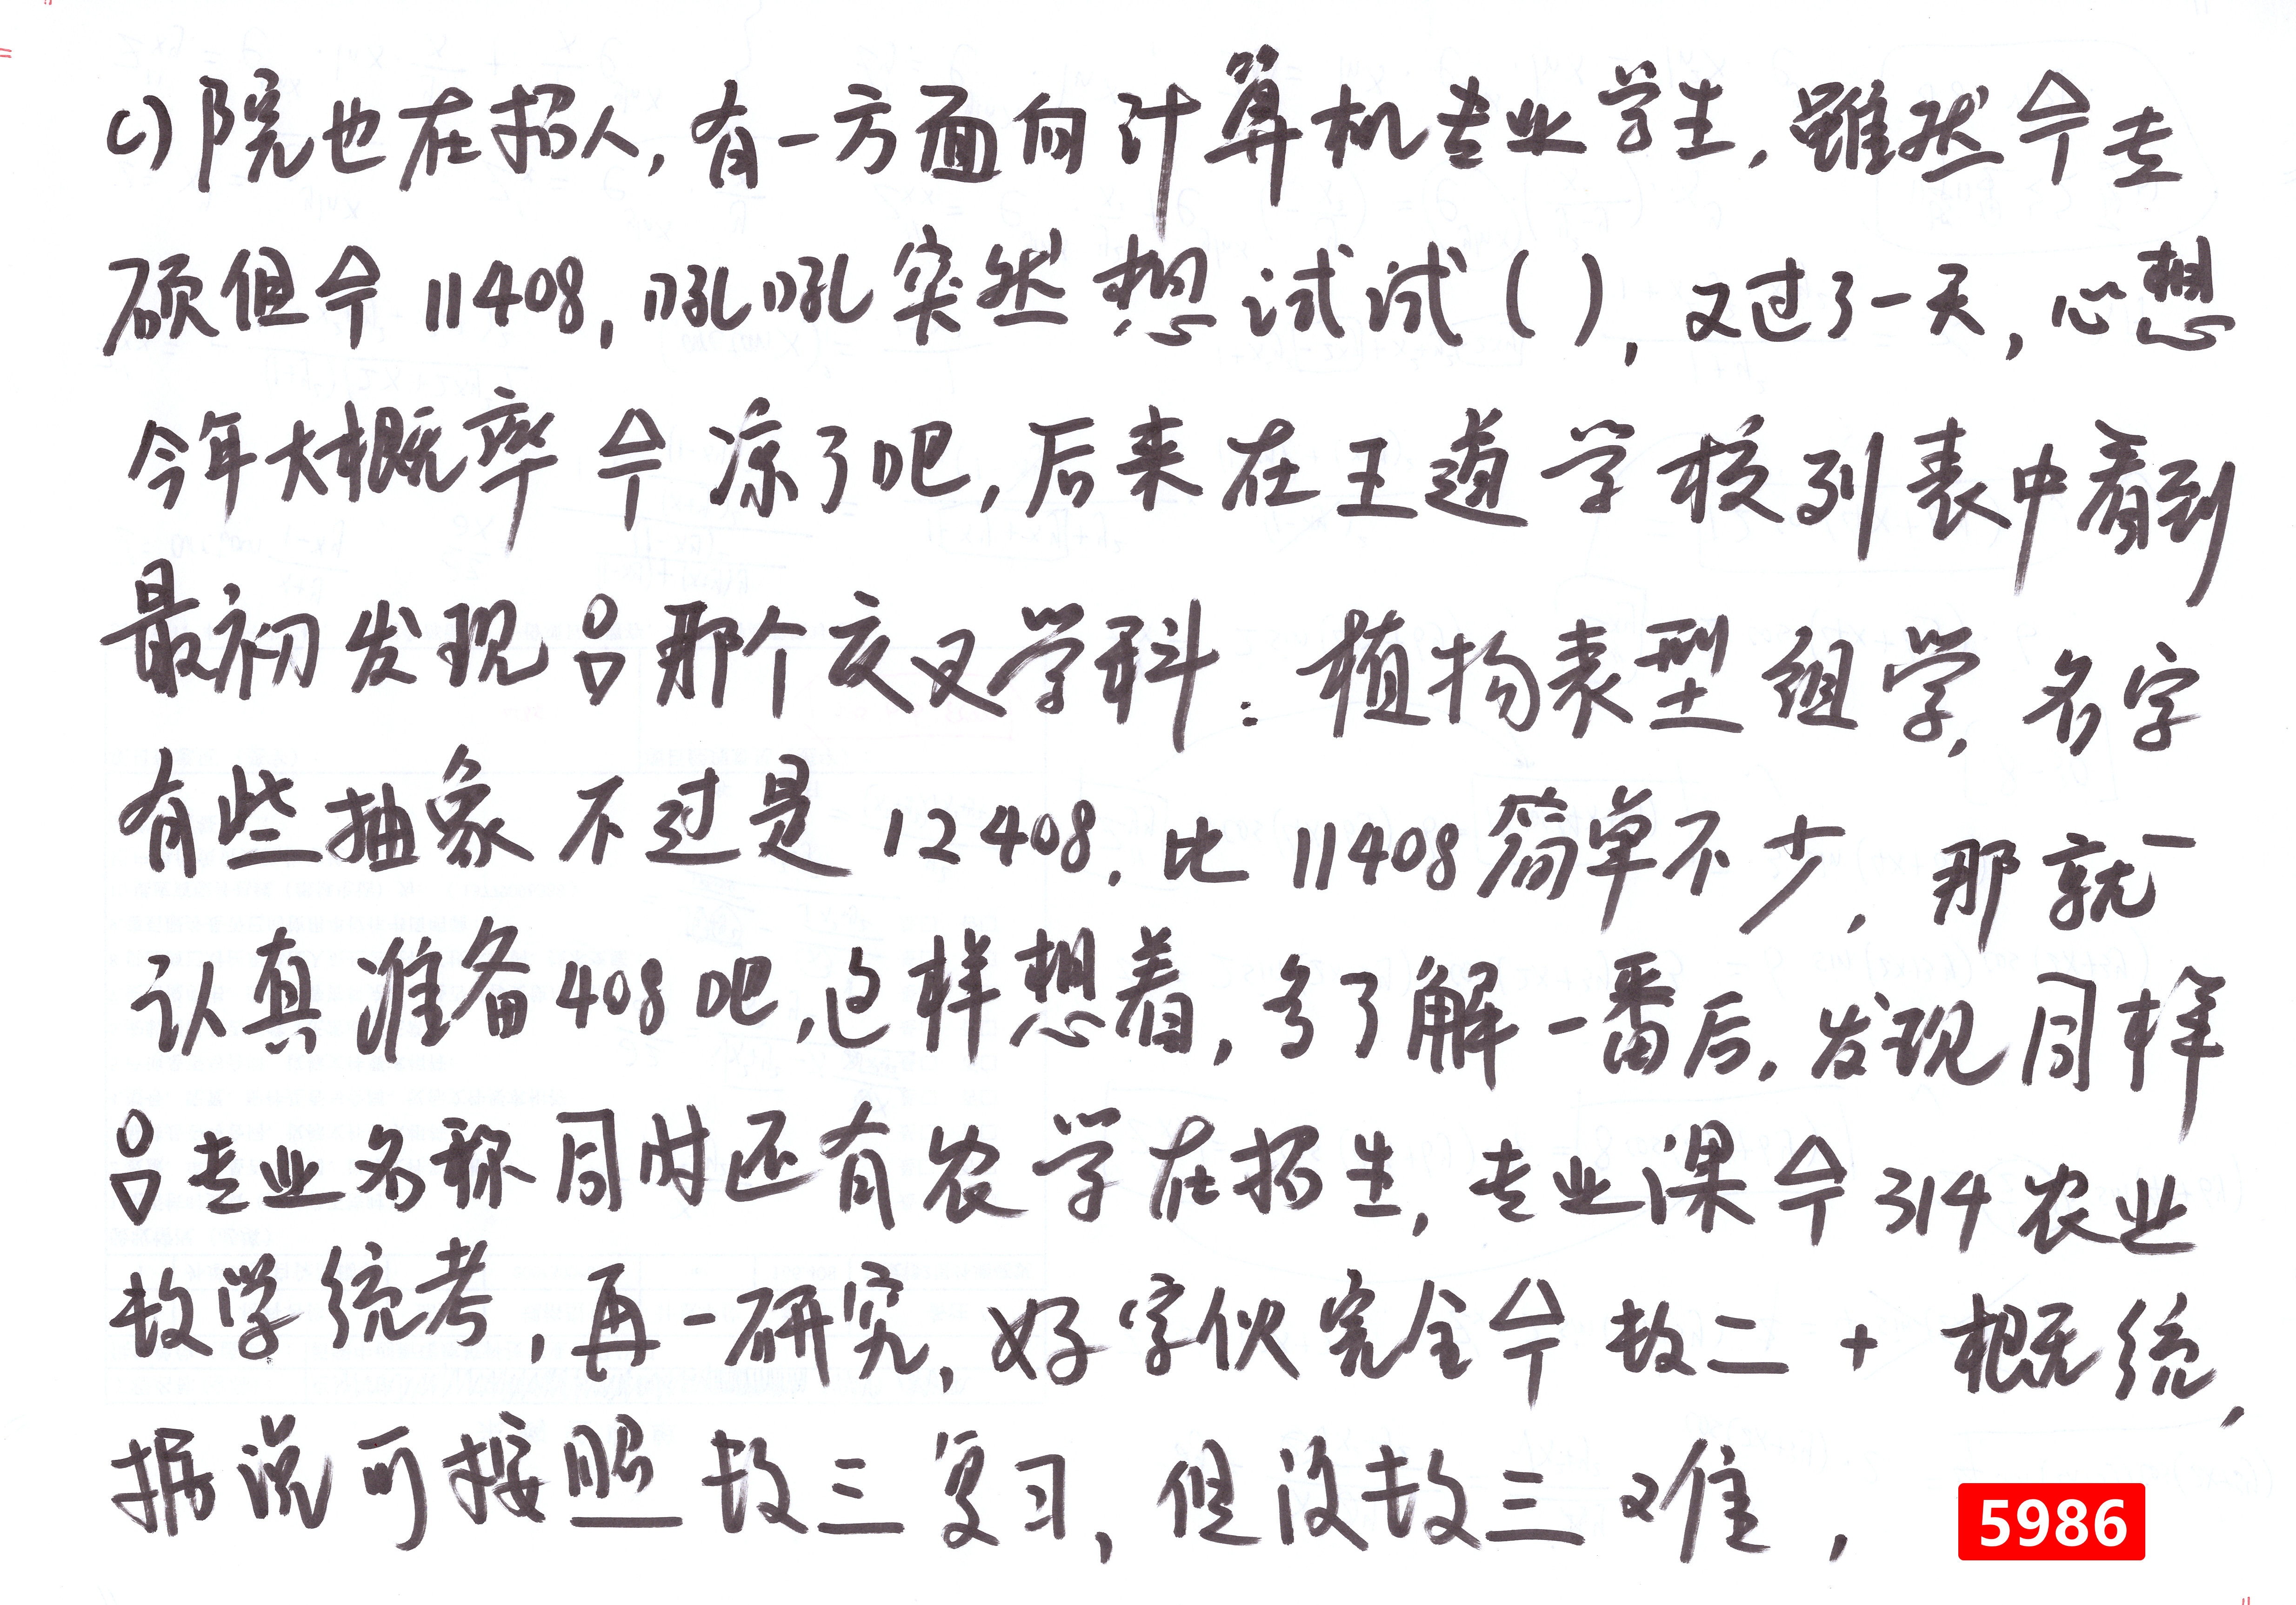 C)院也在招人，有一方面向计算机专业学生，雖然仐专
硕但仐11408，吼吼突然想试试()，又过了一天，心想
今年大概率仐凉了吧，后来在王道学校列表中看到
最初发现那个交叉学科：植物表型组学，名字
有些抽象不过是12408，比11408简单不少，那就一
认真准备408吧，这样想着，多了解一番后，发现同样
专业名称同时还有农学在招生，专业课仐314农业
数学统考，再一研究，好字伙完全仐数二+概统，
据说可按照数三复习，但没数三难，
5986